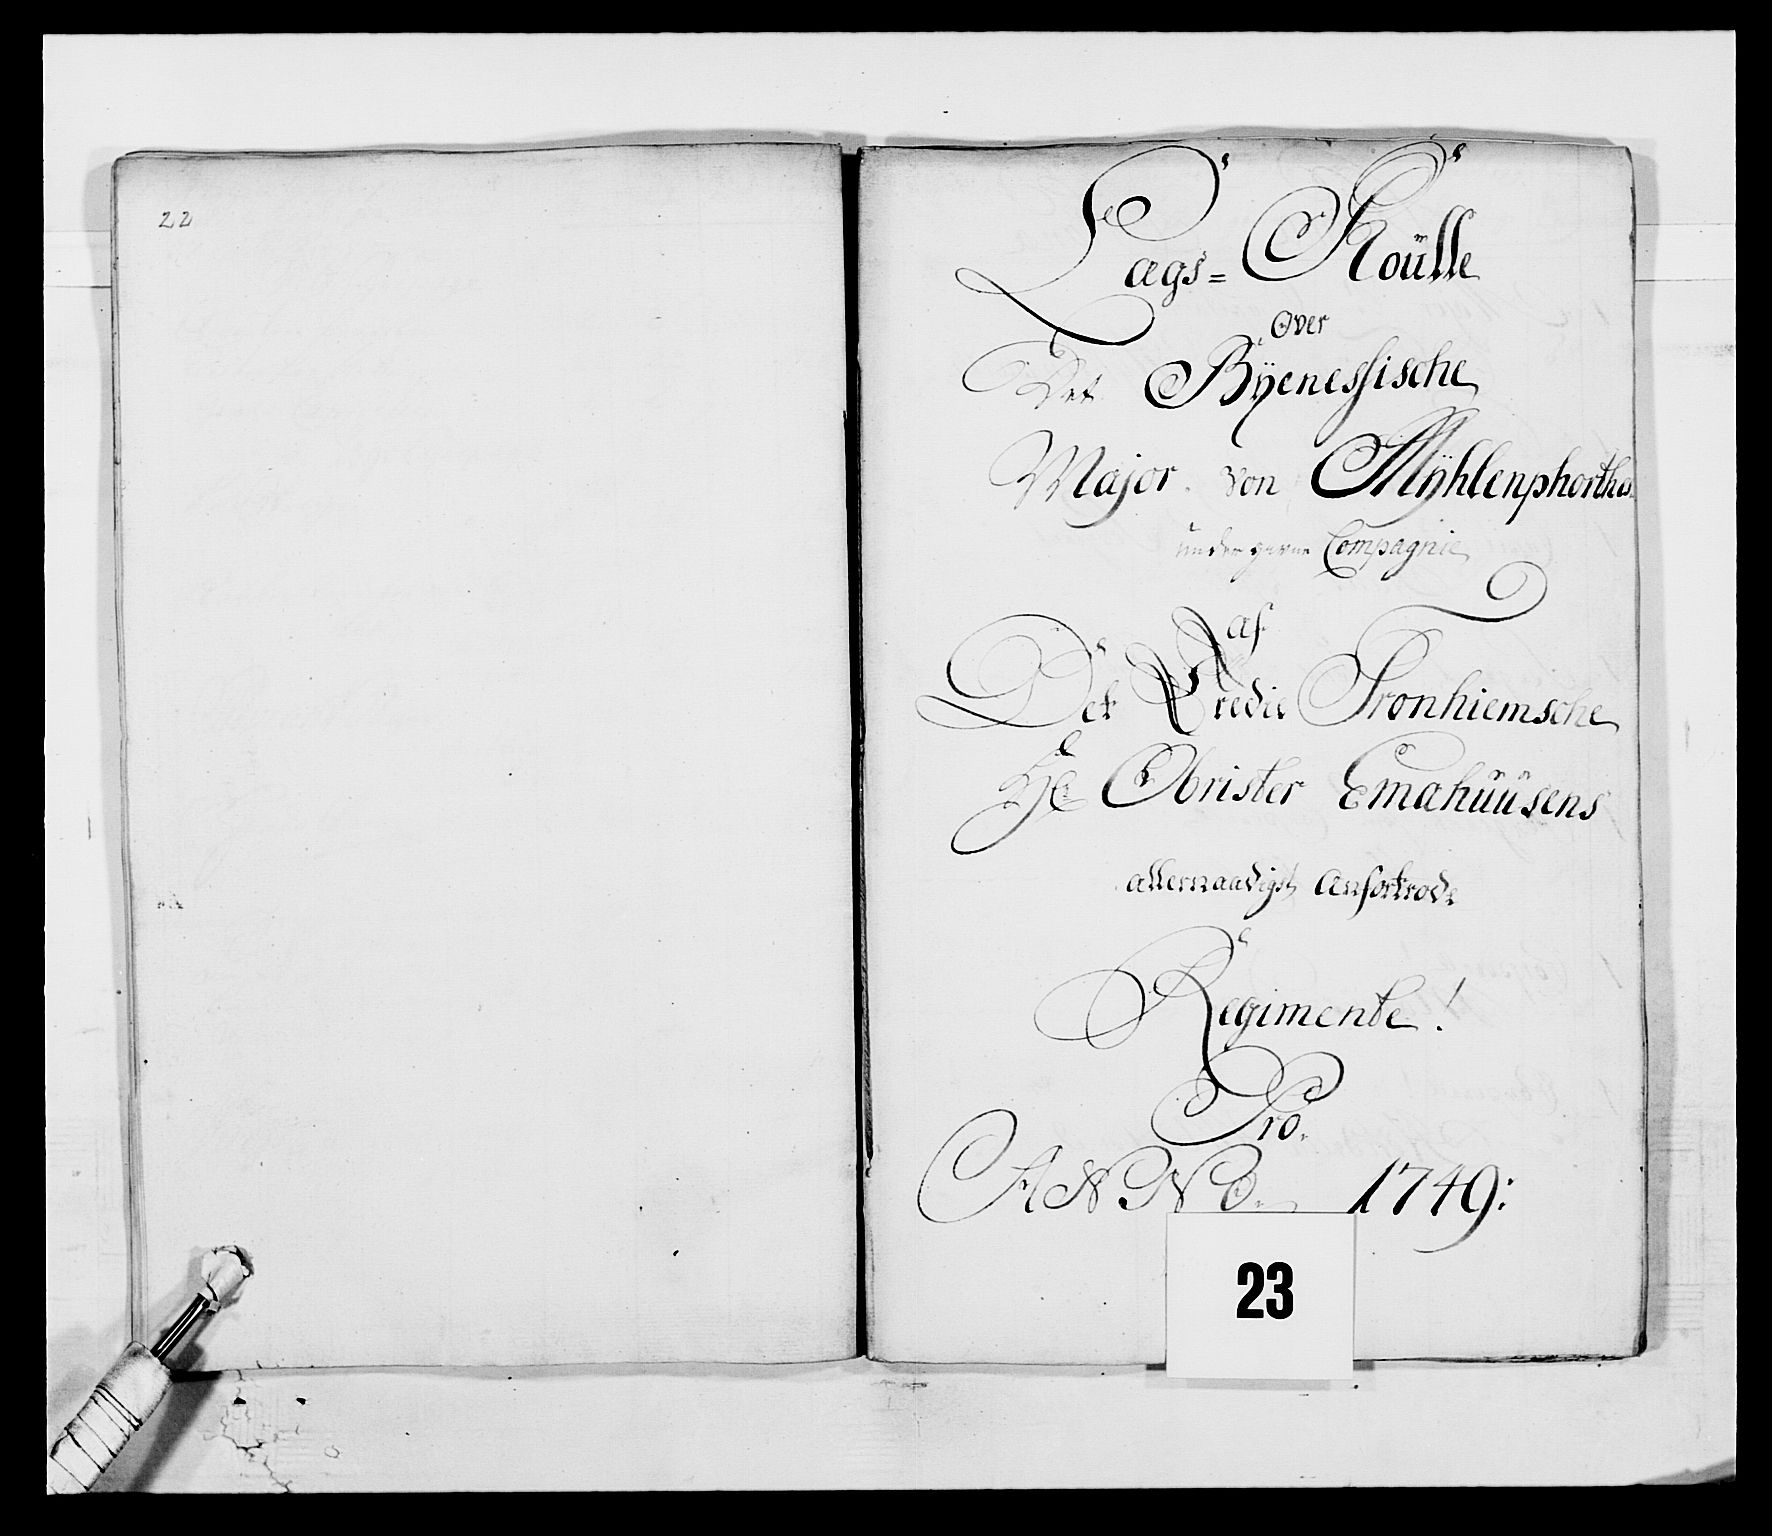 22
Lags= Roülle
Over
Det Bÿenessische
Major von Mÿhlenphorths
undergivne Compagnie
af
Det Tredie Tronhiemsche
Hr Obrister Emahüüsens
allernaadigst Anfortrode
Regimente!
Pro.
ANNO. 1749:
23